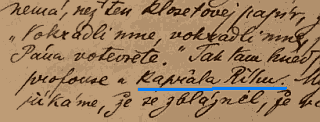 nemá, než ten klosetovej papír,
„Vokradli nme, vokradli nme,
Pána votevřete.“ Tak tam hned
profouse a kaprála Říhu. M
říkáme, že se zbláznil, že